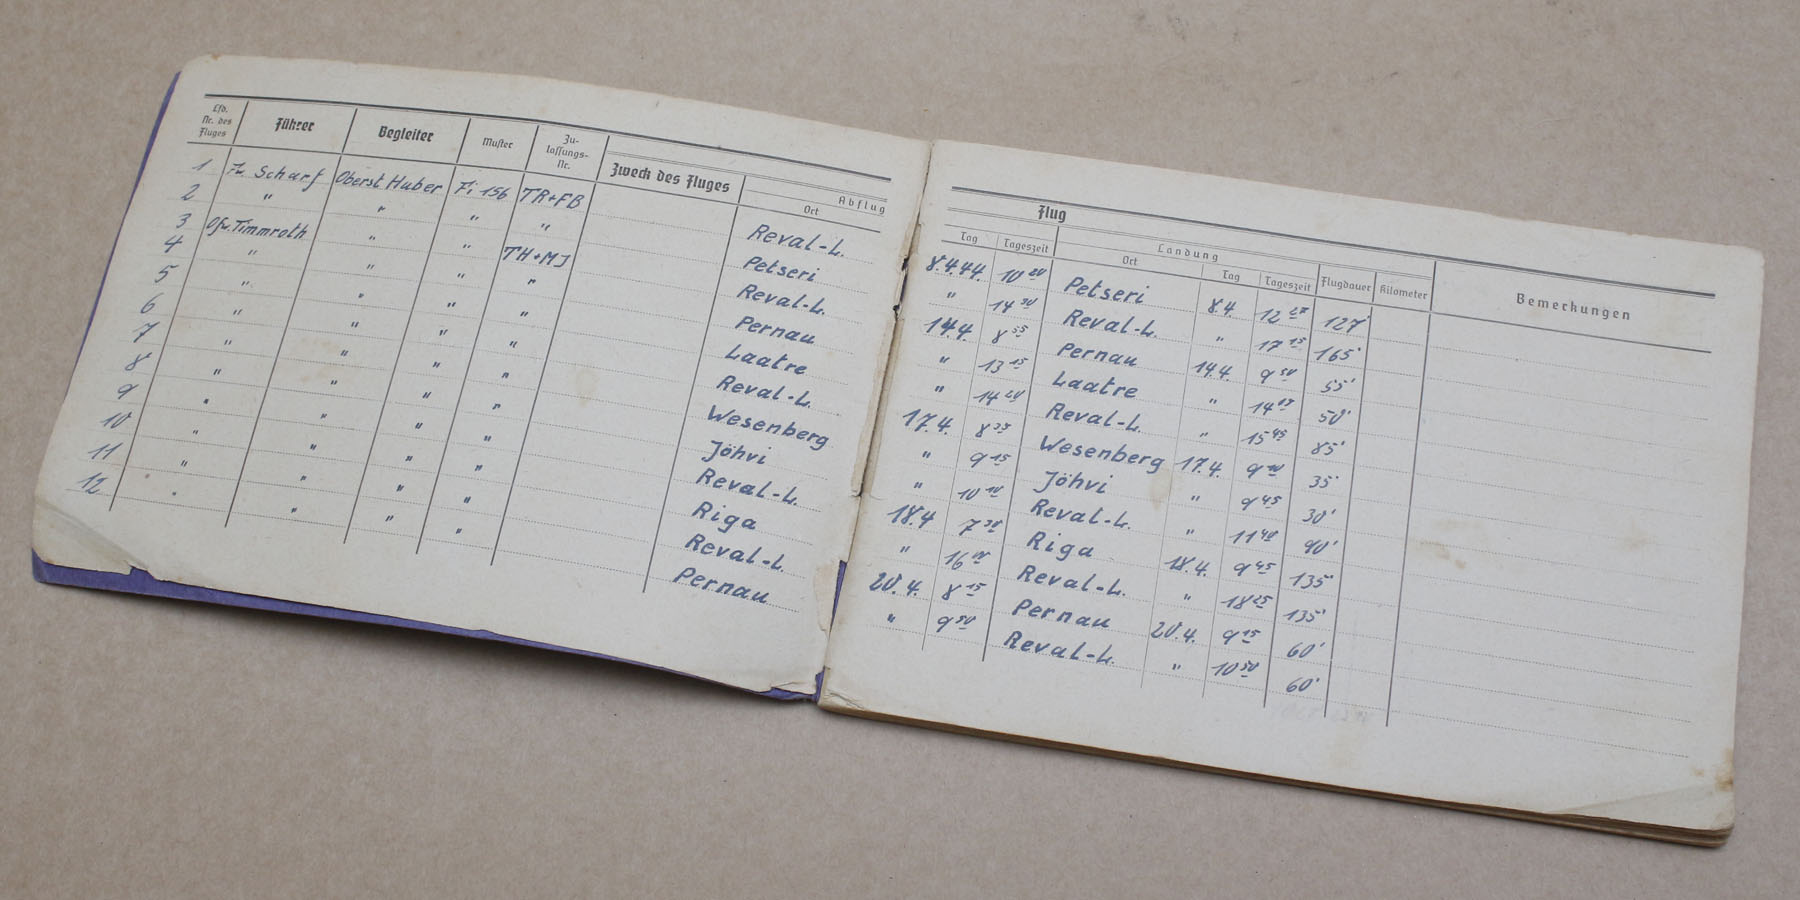 Lfd. Nr. des Fluges Führer Begleiter Muster Zulassungs-Nr. Zweck des Fluges Abflug Ort Flug Tag Tageszeit Landung Ort Tag Tageszeit Flugdauer Kilometer Bemerkungen
1 Fw. Scharf Oberst Huber Fi 156 TR+FB Reval-L. 8.4.44. 10 20 Petseri 8.4. 12 27 127'
2 " " " " Petseri " 14 30 Reval-L. " 17 15 165'
3 Ofw. Timmroth " " TH+MJ Reval-L. 14.4. 8 55 Pernau 14.4. 9 50 55'
4 " " " " Pernau " 13 15 Laatre " 14 05 50'
5 " " " " Laatre " 14 20 Reval-L. " 15 45 85'
6 " " " " Reval-L. 17.4. 8 35 Wesenberg 17.4. 9 10 35'
7 " " " " Wesenberg " 9 15 Jöhvi " 9 45 30'
8 " " " " Jöhvi " 10 10 Reval-L. " 11 40 90'
9 " " " " Reval-L. 18.4 7 30 Riga 18.4. 9 45 135'
10 " " " " Riga " 16 10 Reval-L. " 18 25 135'
11 " " " " Reval-L. 20.4. 8 15 Pernau 20.4. 9 15 60'
12 " " " " Pernau " 9 50 Reval-L. " 10 50 60'